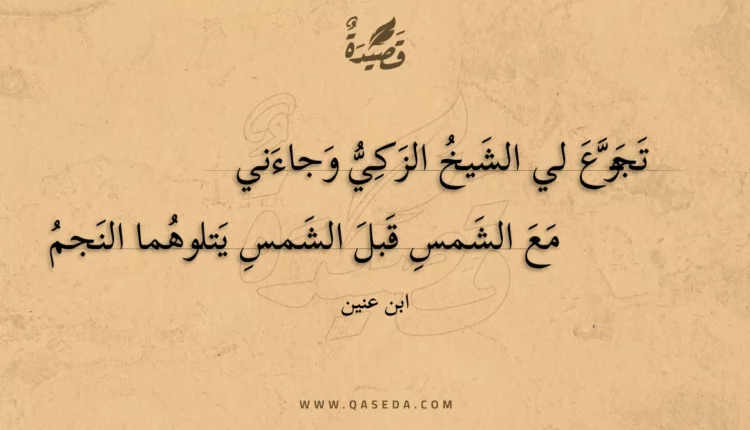 قَصِيْدَةٌ
تَجَوَّعَ لي الشَيخُ الزَكِيُّ وَجاءَني
مَعَ الشَمسِ قَبلَ الشَمسِ يَتلوهُما النَجمُ
ابن عنين
WWW.QASEDA.COM